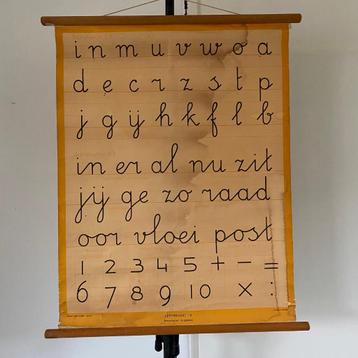 i n m u v w o a
d e c r z s t p
j g ij h k f l b
in er al nu zit
jij ge zo raad
oor vloei post
1 2 3 4 5 + - =
6 7 8 9 10 × :